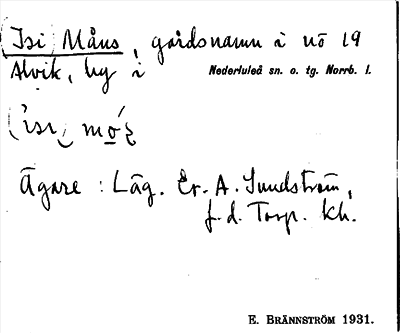 (Isi) Måns, gårdsnamn i nō 19
Alvik, by i Nederluleå sn. o. tg. Norrb. l.
Ägare: Läg. Er. A. Sundström,
f. d. Torp. Kh.
E. BRÄNNSTRÖM 1931.